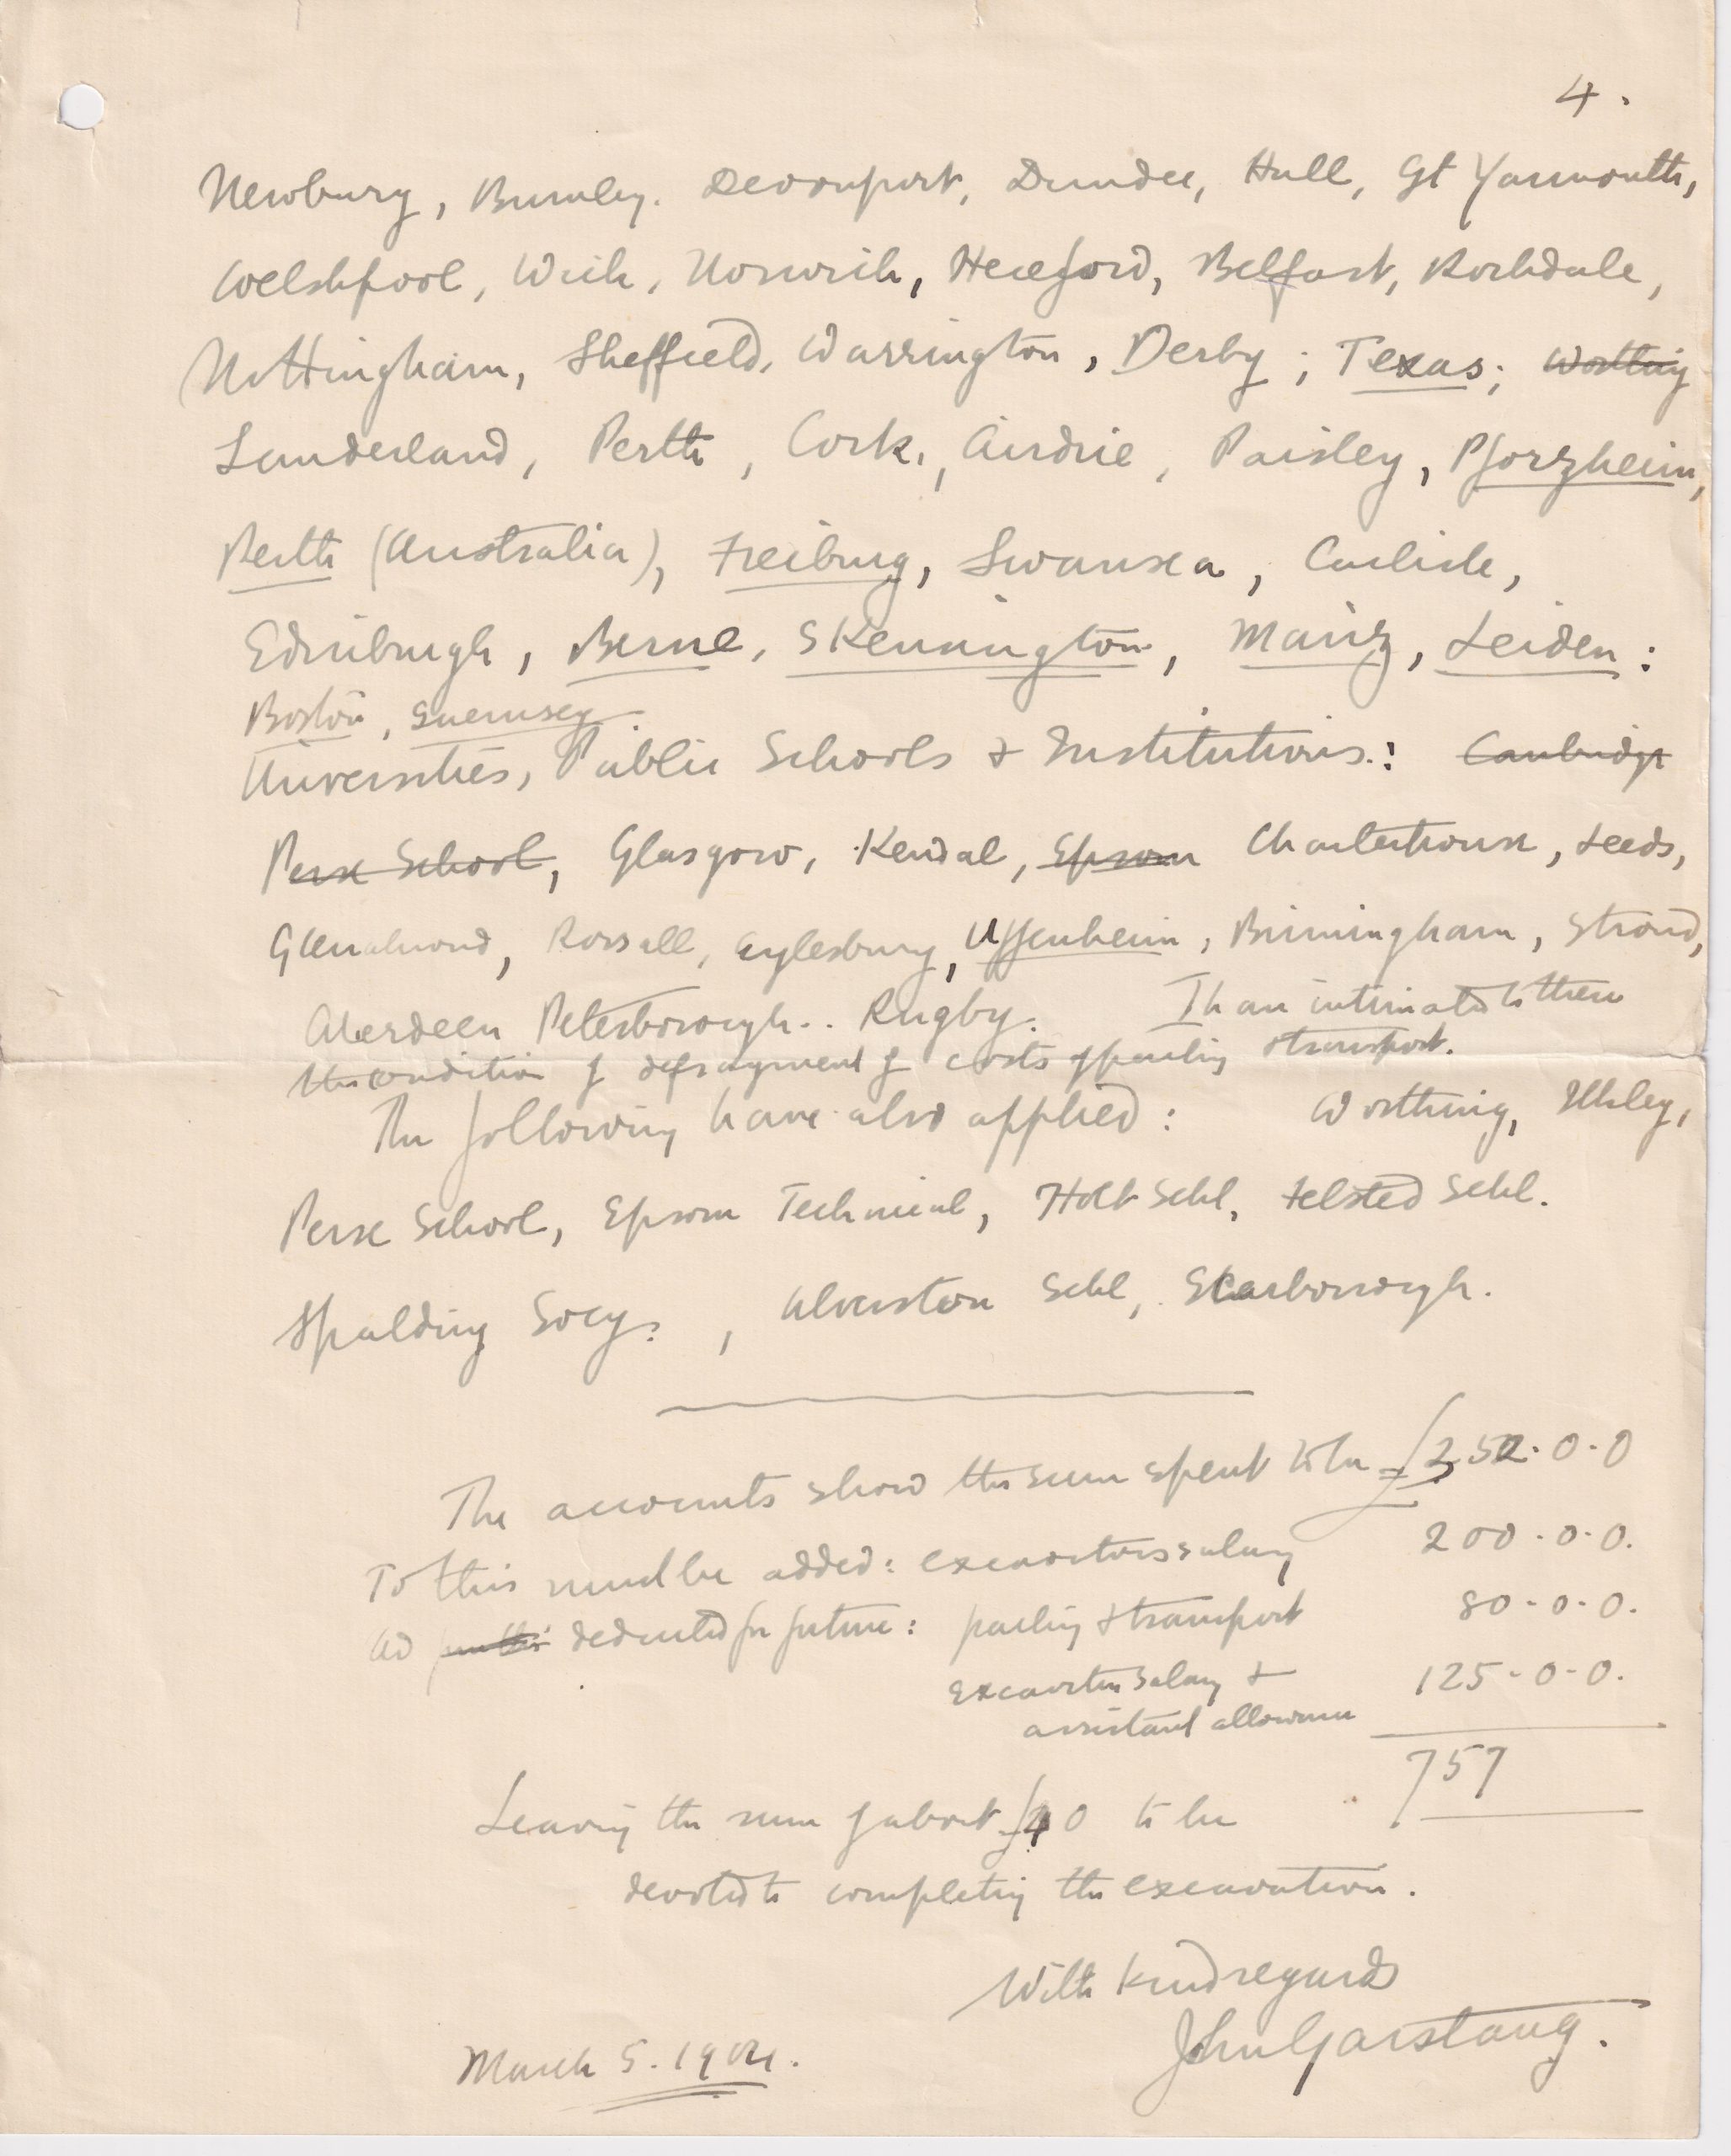 4.
Newbury, Burnley. Devonport, Dundee, Hull, Gt Yarmouth,
Welshpool, Wick, Norwich, Hereford, Belfast, Rochdale,
Nottingham, Sheffield, Warrington, Derby; Texas; Worthing
Sunderland, Perth, Cork, Airdrie, Paisley, Pforzheim,
Perth (Australia), Freiburg, Swansea, Carlisle,
Edinburgh, Berne, S Kennington, Mainz, Leiden:
Boston, Guernsey.
Universities, Public Schools & Institutions: Cambridge
Perse School, Glasgow, Kendal, Epsom Charterhouse, Leeds,
Glenalmond, Rossall, Aylesbury, Uffenheim, Birmingham, Stroud,
Aberdeen Peterborough.. Rugby. I have intimated to these
the condition of defrayment of costs of packing & transport.
The following have also applied: Worthing, Ilkley,
Perse School, Epsom Technical, Holt Schl, Felsted Schl.
Spalding Socy., Ulverston Schl, Scarborough.
The accounts show the sum spent to be £352.0.0
To this must be added: excavators salary 200.0.0.
deducted for future: packing & transport 80.0.0.
Excavator salary & 125.0.0.
assistant allowance
757
Leaving the sum of about £40 to be
devoted to completing the excavation.
With kind regards
John Garstang.
March 5. 1904.